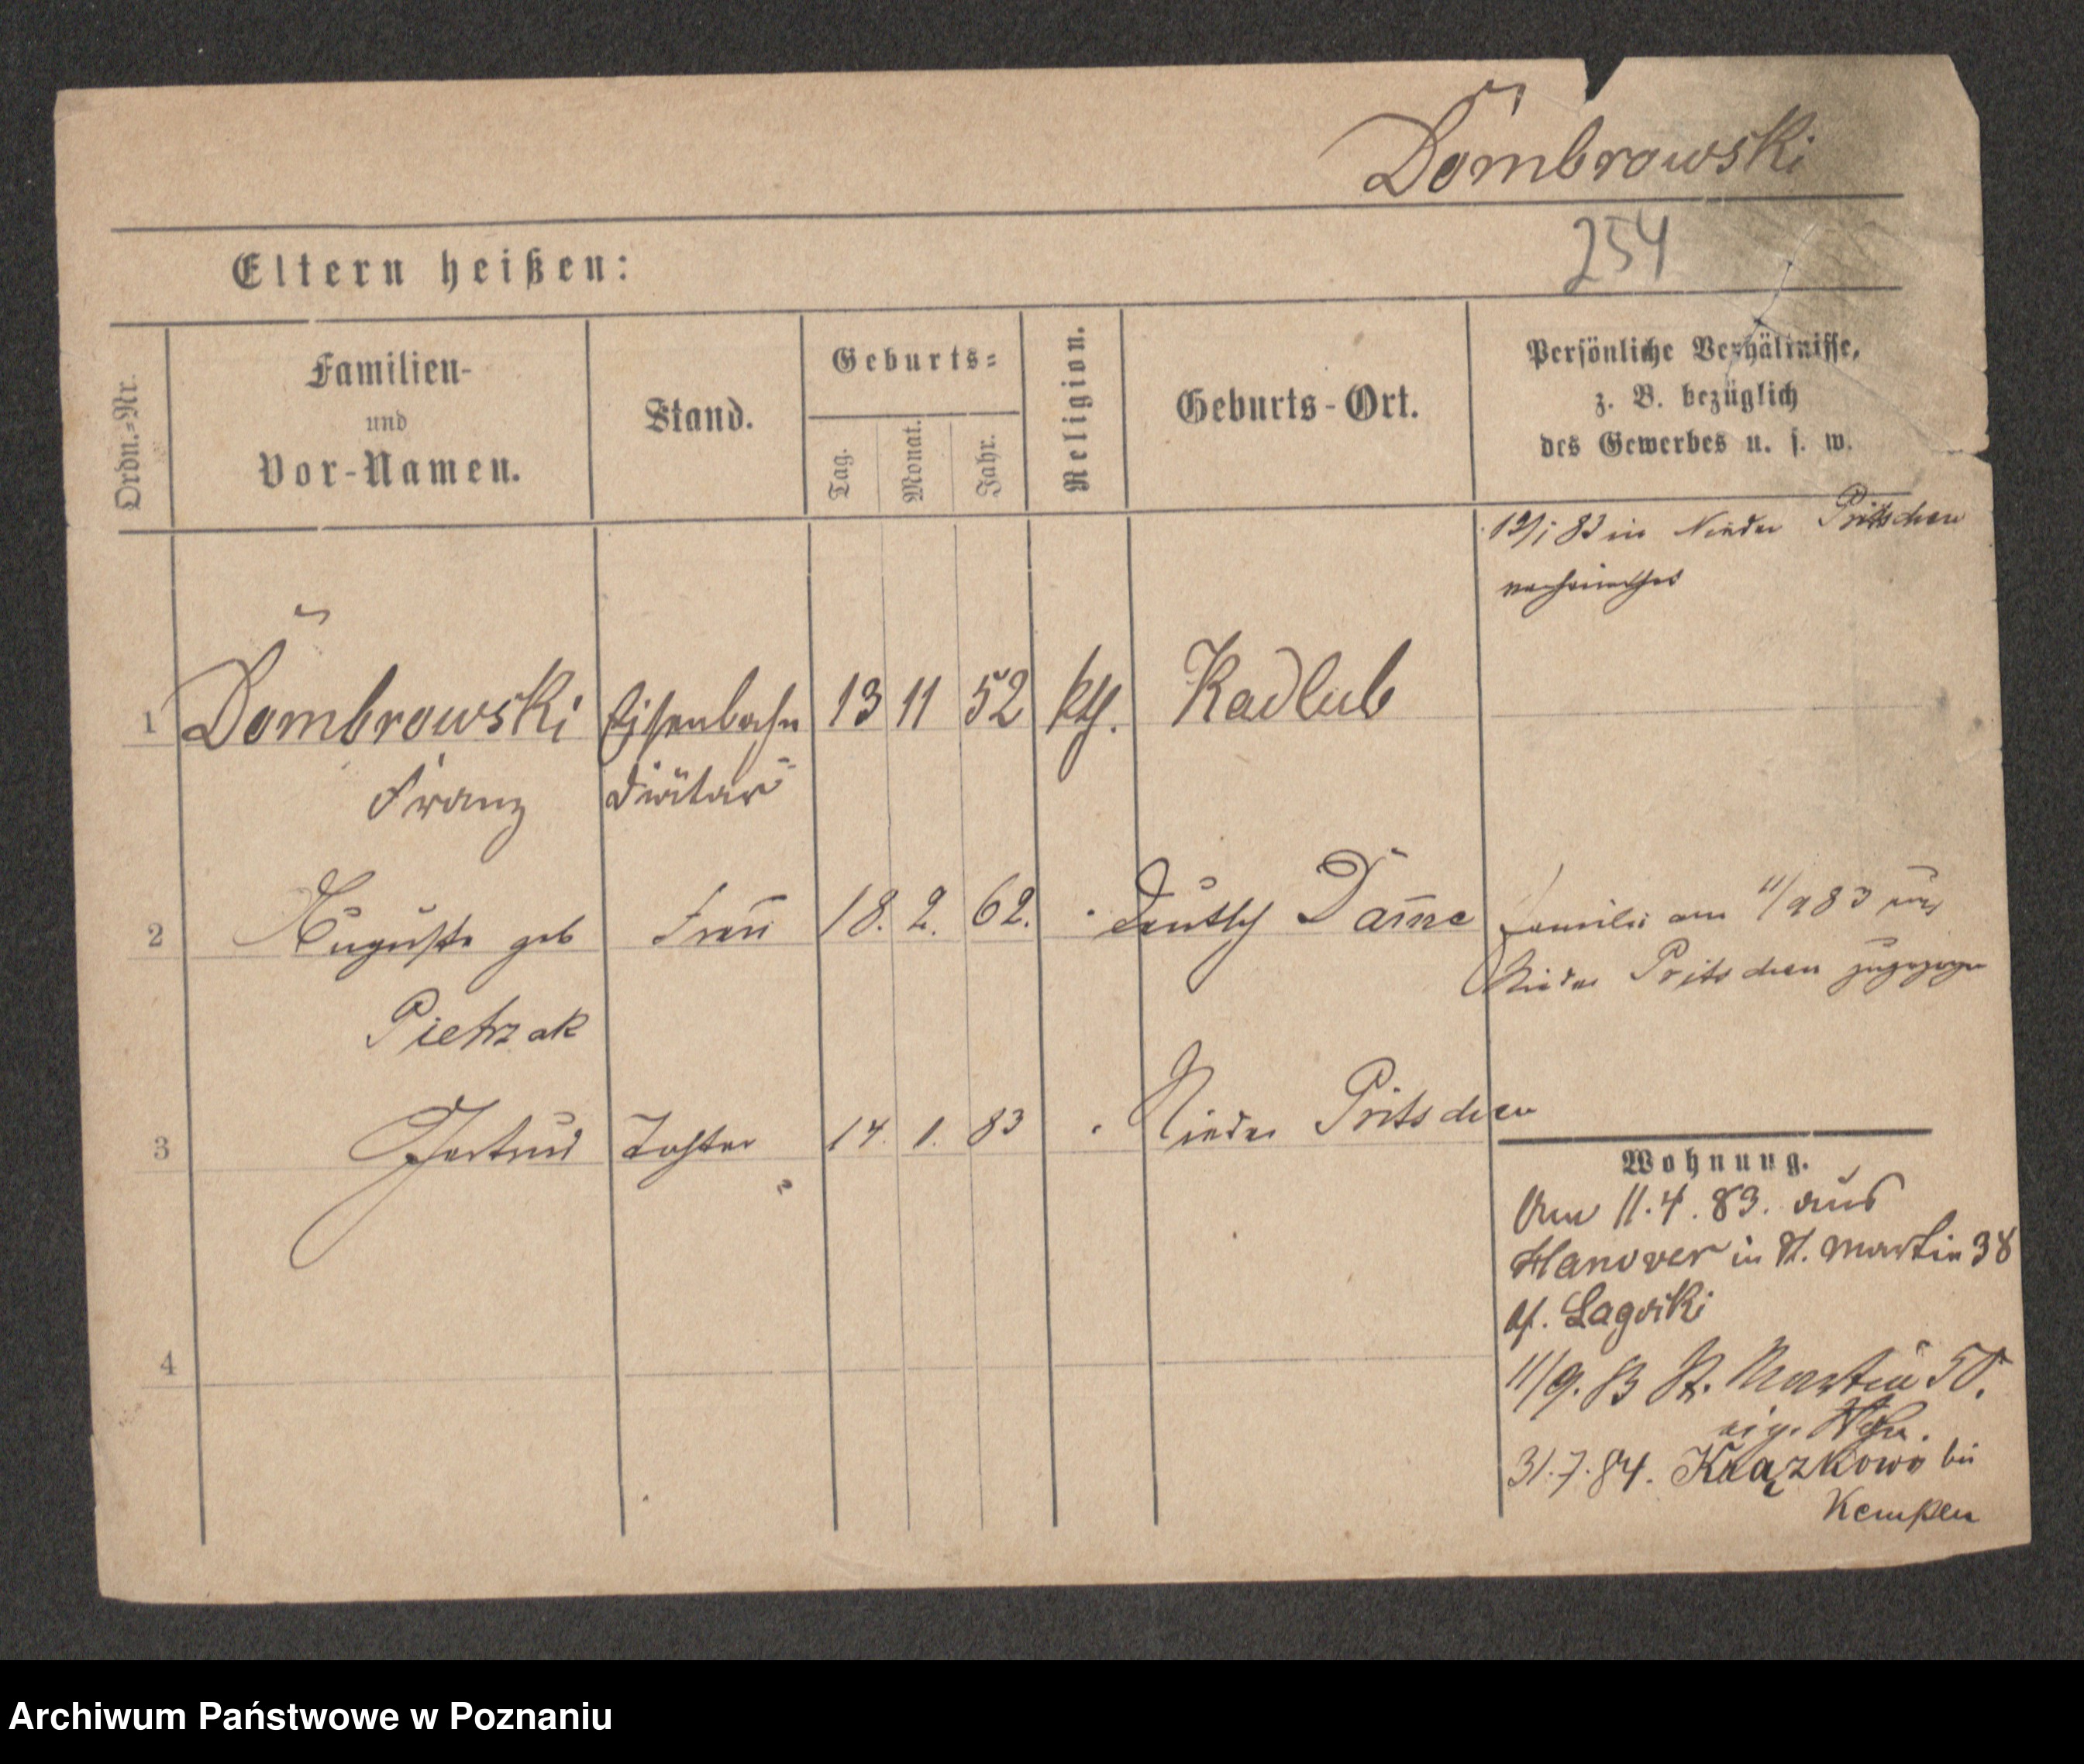 Dombrowski
254
Eltern heißen:
Ordn.=Nr.
Familien-
und
Vor-Namen.
Stand.
Geburts=
Tag.
Monat.
Jahr.
Religion.
Geburts-Ort.
Persönliche Verhältnisse,
z. B. bezüglich
des Gewerbes u. s. w.
83 in Nieder Pritschen
1 Dombrowski Eisenbahn 13 11 52 kth. Kadlub
Franz Diätar
2 Auguste geb Frau 18. 2. 62. Deutsch Familie am 11/9 83 aus
Nieder Pritschen zugezogen
Pietrzak
3 Gertrud Tochter 14. 1. 83 Nieder Pritschen
Wohnung.
Am 11.4.83. aus
Hanover in St. Martin 38
11/9.83 St. Martin
31.7.84. bei
Kempen
4
Archiwum Państwowe w Poznaniu